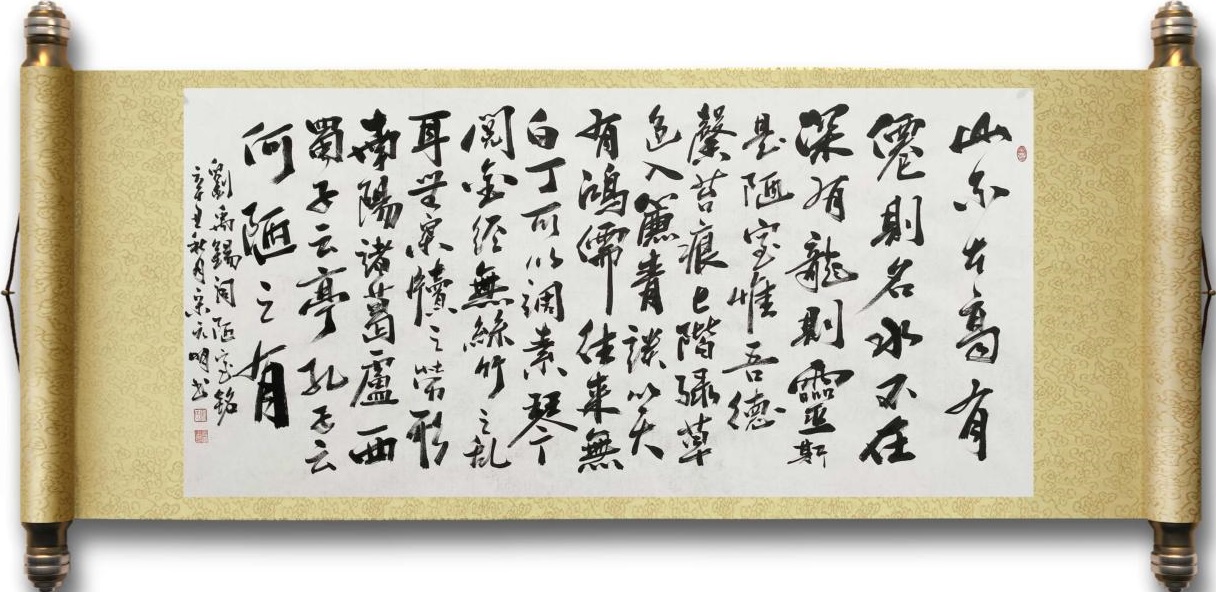 山不在高有
僊則名水不在
深有龍則靈斯
是陋室惟吾德
馨苔痕上階綠草
色入簾青談笑
有鴻儒往來無
白丁可以調素琴
閱金經無絲竹之亂
耳無案牘之勞形
南陽諸葛廬西
蜀子云亭孔子云
何陋之有
劉禹錫詞陋室銘
辛丑秋月宋元明书